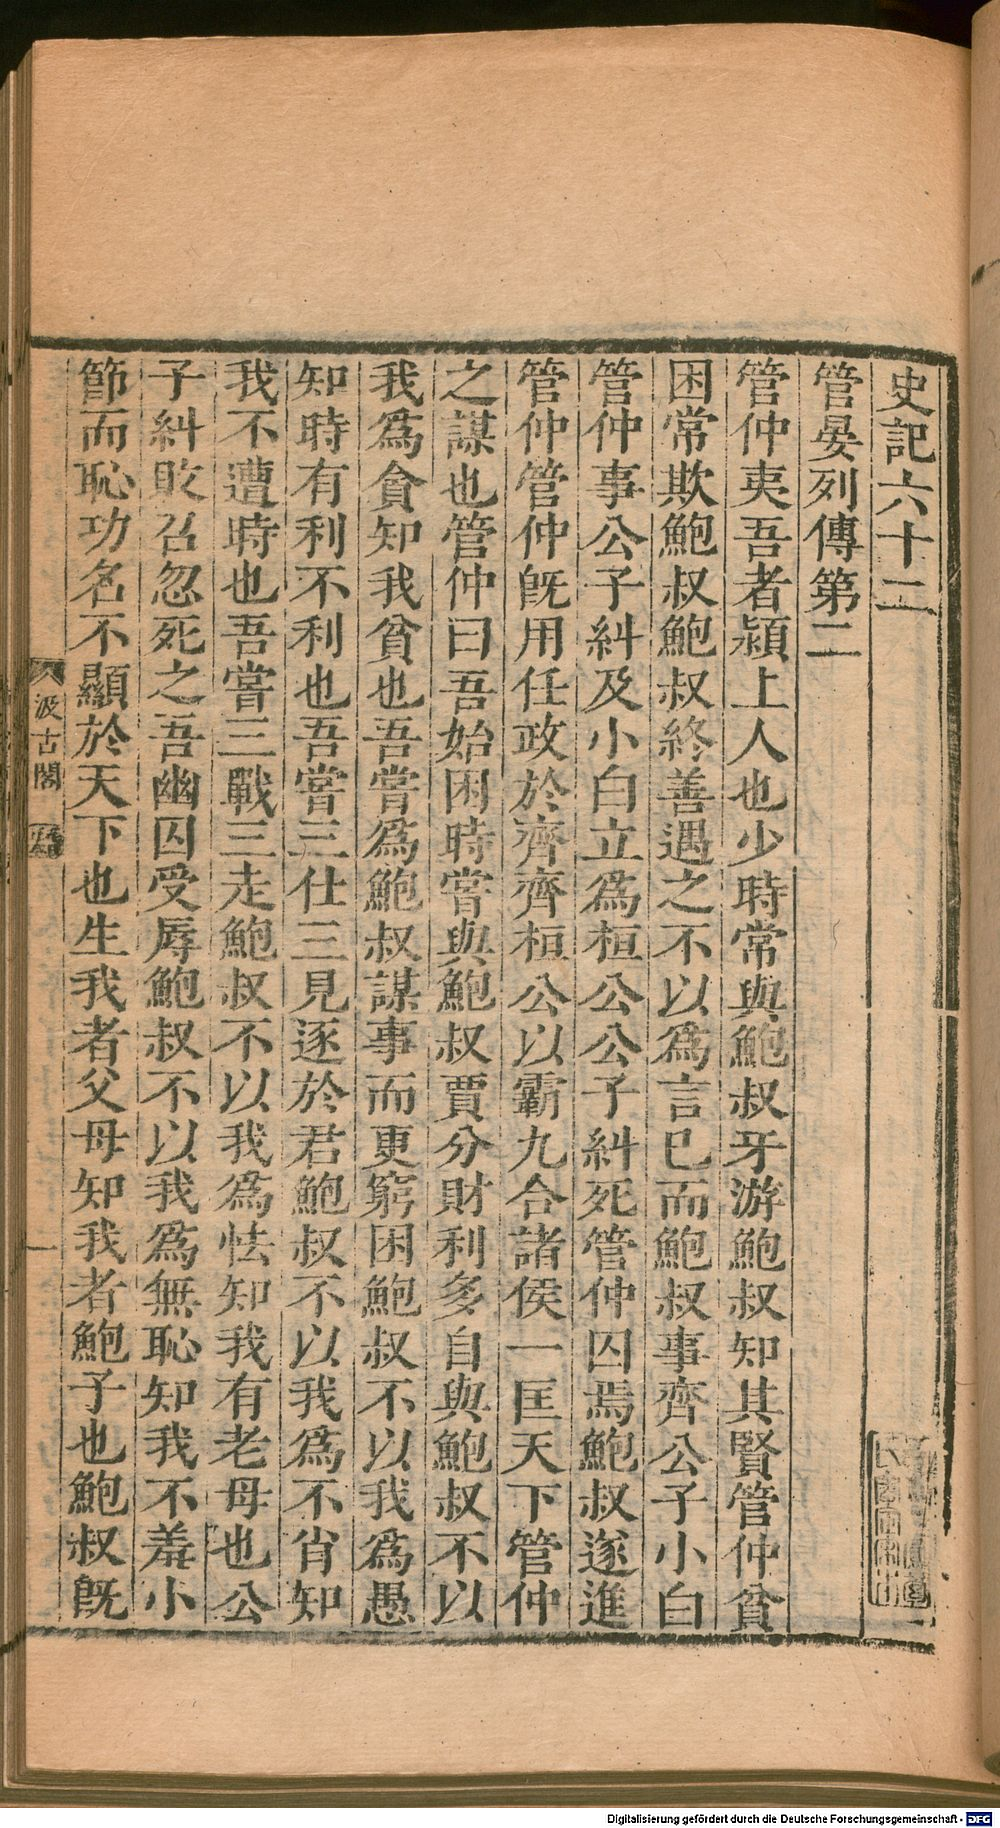 史記六十二
管晏列傳第二
管仲夷吾者潁上人也少時常與鮑叔牙游鮑叔知其賢管仲貧
困常欺鮑叔鮑叔終善遇之不以爲言已而鮑叔事齊公子小白
管仲事公子糾及小白立爲桓公公子糾死管仲囚焉鮑叔遂進
管仲管仲旣用任政於齊齊桓公以霸九合諸侯一匡天下管仲
之謀也管仲曰吾始困時嘗與鮑叔賈分財利多自與鮑叔不以
我爲貪知我貧也吾嘗爲鮑叔謀事而更窮困鮑叔不以我爲愚
知時有利不利也吾嘗三仕三見逐於君鮑叔不以我爲不肖知
我不遭時也吾嘗三戰三走鮑叔不以我爲怯知我有老母也公
子糾敗召忽死之吾幽囚受辱鮑叔不以我爲無恥知我不羞小
節而恥功名不顯於天下也生我者父母知我者鮑子也鮑叔旣
汲古閣
一
Digitalisierung gefördert durch die Deutsche Forschungsgemeinschaft - DFG